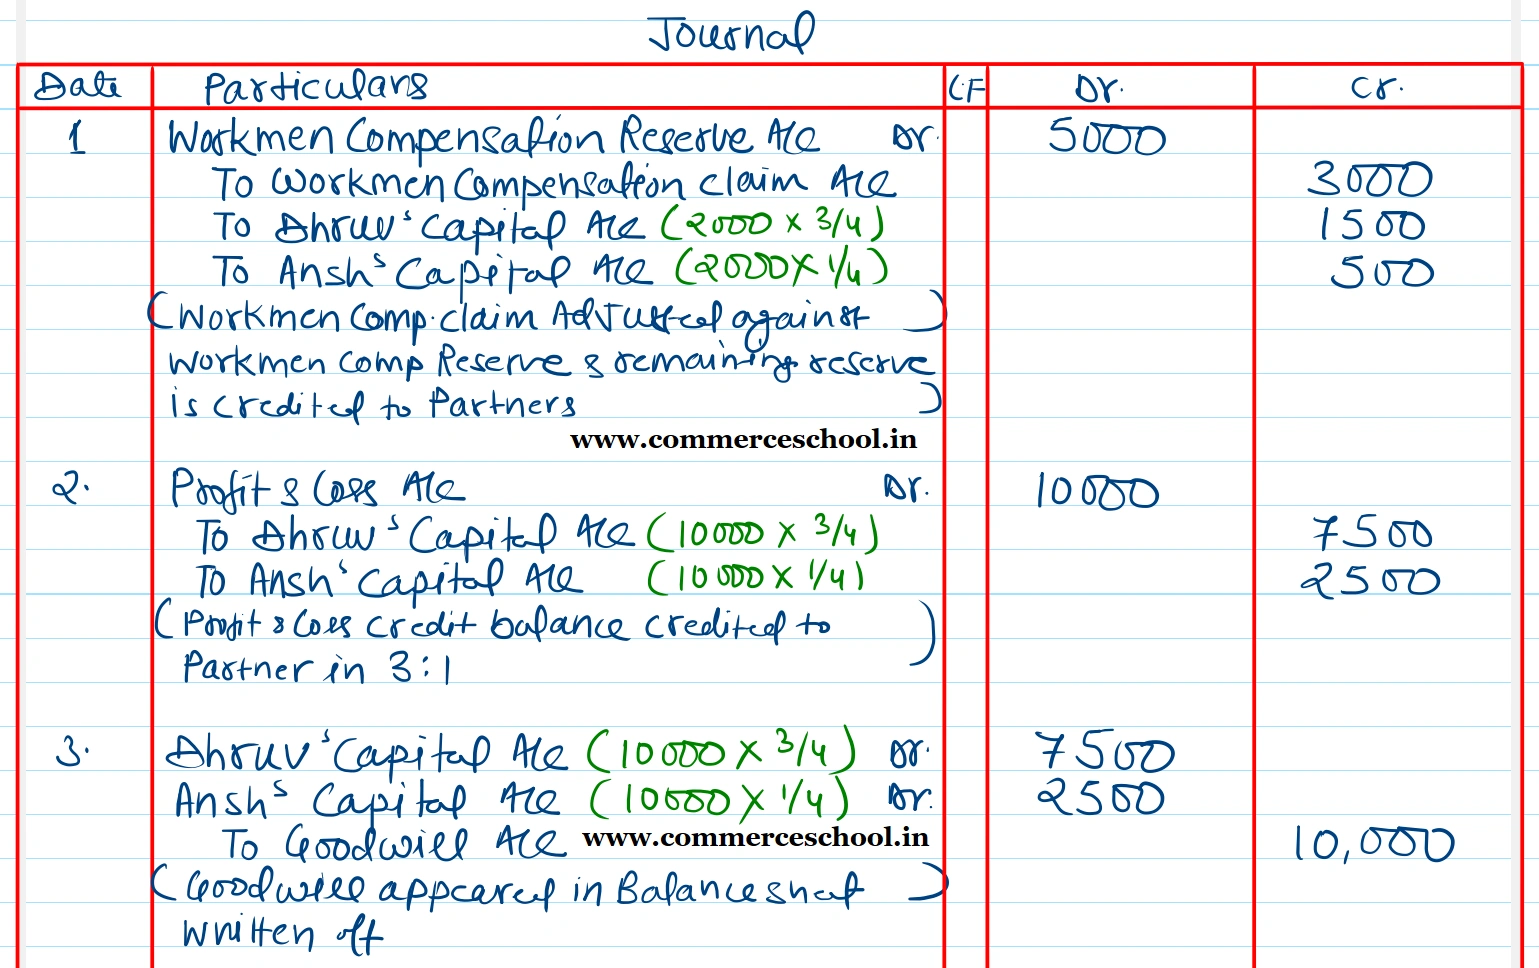 Journal
Date Particulars L.F Dr. Cr.
1 Workmen Compensation Reserve A/c Dr. 5000
To Workmen Compensation claim A/c 3000
To Dhruv's Capital A/c (2000 x 3/4) 1500
To Ansh's Capital A/c (2000 x 1/4) 500
(Workmen Comp. claim Adjusted against
Workmen comp Reserve & remaining reserve
is credited to Partners)
www.commerceschool.in
2. Profit & Loss A/c Dr. 10000
To Dhruv's Capital A/c (10000 x 3/4) 7500
To Ansh's Capital A/c (10000 x 1/4) 2500
(Profit & Loss credit balance credited to
Partner in 3:1)
3. Dhruv's Capital A/c (10000 x 3/4) Dr. 7500
Ansh's Capital A/c (10000 x 1/4) Dr. 2500
To Goodwill A/c www.commerceschool.in 10,000
(Goodwill appeared in Balance sheet)
written off